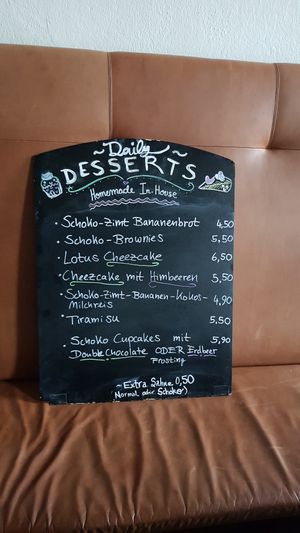 ~ Daily ~
DESSERTS
Homemade In-House
• Schoko-Zimt Bananenbrot 4,50
• Schoko-Brownies 5,50
• Lotus Cheezcake 6,50
• Cheezcake mit Himbeeren 5,50
• Schoko-Zimt-Bananen-Kokos- 4,90
Milchreis
• Tiramisu 5,50
• Schoko Cupcakes mit 5,90
Double Chocolate ODER Erdbeer
Frosting
~Extra Sahne 0,50
(Normal oder Schoko)